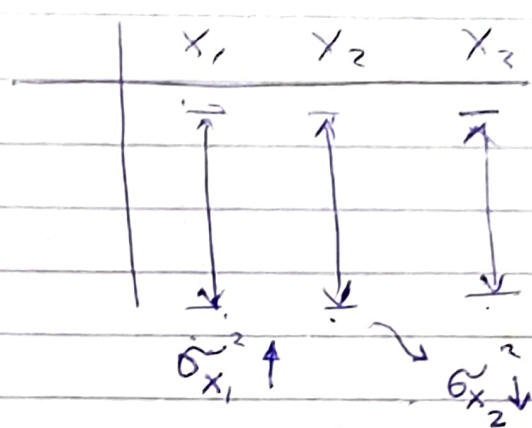 X₁ X₂ X₃
σ²ₓ₁ ↑ σ²ₓ₂ ↓